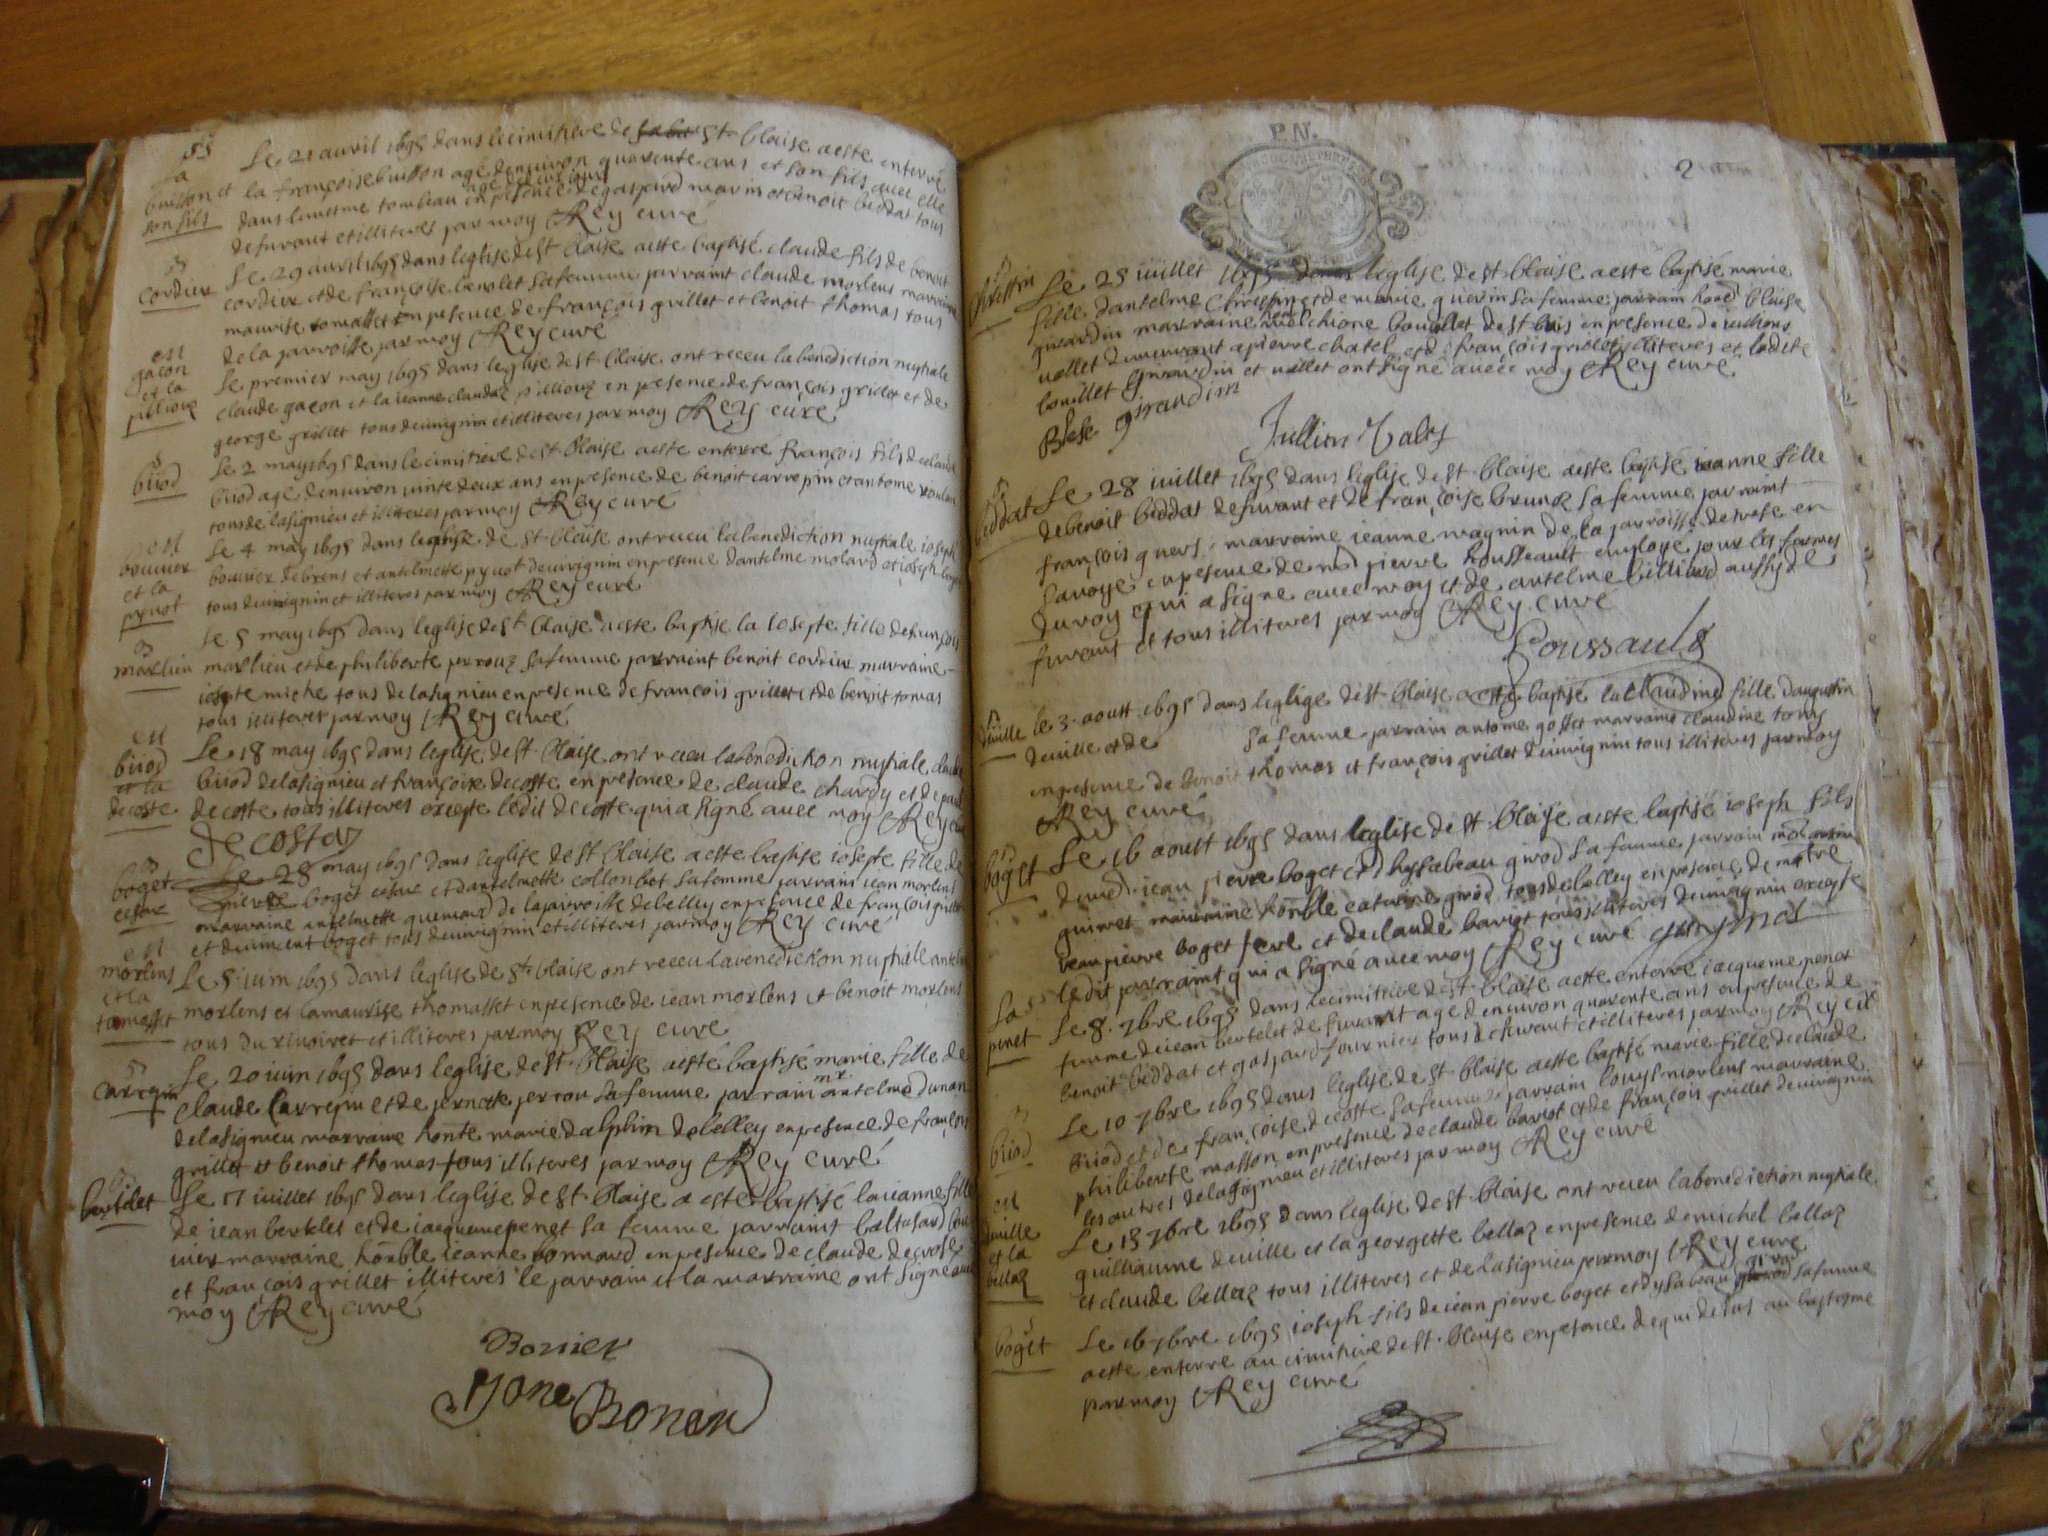 Le 21 avril 1695 dans le cimitiere de st blaise a este enterré
la
buisson et
son fils
la françoise buisson agé denuiron quarente ans et son fils auec elle
dans le mesme tombeau en presence de gaspard marin et benoit biddat tous
de furant et illiteres par moy Rey curé
cordier
Le 29 avril 1695 dans leglise de st blaise a este baptisé claude fils de benoit
cordier et de françoise berlet sa femme parraint claude morlens marraine
maurise tomasset en presence de françois grillet et benoit thomas tous
de la parroisse par moy Rey curé
en
gacon
et la
pillioux
Le premier may 1695 dans leglise de st blaise ont receu la benediction nuptiale
claude gacon et la ieanne claudaz pillioux en presence de françois grillet et de
george grillet tous deuuignin et illiteres par moy Rey curé
biiod
Le 2 may 1695 dans le cimitiere de st blaise a este enterré françois fils de claude
biiod agé denuiron deux ans en presence de benoit carrepin et antoine
tous de lasignieu et illiteres par moy Rey curé
en
bouuier
et la
pyuot
Le 4 may 1695 dans leglise de st blaise ont receu la benediction nuptiale ioseph
bouuier de brens et antelmette pyuot deuuignin en presence dantelme molard et ioseph
tous deuuignin et illiteres par moy Rey curé
marlieu
Le 5 may 1695 dans leglise de st blaise a este baptisé la iosepte fille de françois
marlieu et de philiberte perrouz sa femme parraint benoit cordier marraine
iosepte miche tous de lasignieu en presence de françois grillet et de benoit tomas
tous illiteres par moy Rey curé
en
biiod
et la
decoste
Le 18 may 1695 dans leglise de st blaise ont receu la benediction nuptiale claude
biiod de lasignieu et françoise decoste en presence de claude chardy et de paul
decoste tous illiteres excepte ledit decoste qui a signé auec moy Rey curé
Decostaz
boget
cesar
Le 28 may 1695 dans leglise de st blaise a este baptisé iosepte fille de
pierre boget cesar et dantelmette collonbet sa femme parrain iean morlens
marraine antelmette guemard de la parroisse de belley en presence de françois grillet
et de boget tous deuuignin et illiteres par moy Rey curé
en
morlens
et la
tomasset
Le 5 iuin 1695 dans leglise de st blaise ont receu la benediction nuptiale antelme
morlens et la maurise thomasset en presence de iean morlens et benoit morlens
tous du riuoiret et illiteres par moy Rey curé
carrepin
Le 20 iuin 1695 dans leglise de st blaise a esté baptisé marie fille de
claude Carrepin et de pernete perrou sa femme parrain mr antelme dunan
de lasignieu marraine honte marie dalphin de belley en presence de françois
grillet et benoit thomas tous illiteres par moy Rey curé
bertelet
Le 17 iuillet 1695 dans leglise de st blaise a este baptisé la ieanne fille
de iean bertelet et de iacquemepenet sa femme parraint baltasard
marraine honble ieanne bonnard en presence de claude
et françois grillet illiteres le parrain et la marraine ont signé auec
moy Rey curé
Bonier
Jane Bonier
P.N.
2
chrestin
Le 25 iuillet 1695 dans leglise de st blaise a este baptisé marie
fille dantelme Chrestin et de marie guerin sa femme parrain hond blaise
girardin marraine melchione bouillet de st bois en presence de iullion
uallet demeurant a pierre chatel et de françois grillet illiteres et ladite
bouillet girardin et uallet ont signé auec moy Rey curé
Blese girandin
Jullien Valet
biddat
Le 28 iuillet 1695 dans leglise de st blaise a este baptisé ieanne fille
de benoit biddat de furant et de françoise brunez sa femme parraint
françois guers marraine ieanne magnin de la parroisse de trese en
sauoye en presence de md pierre housseault employé pour les fermes
du roy qui a signé auec moy et de antelme billiard aussy de
furant et tous illiteres par moy Rey curé
Poussault
deuille
le 3 aoust 1695 dans leglise de st blaise a este baptisé la claudine fille daugustin
deuille et de sa femme parrain antoine gosset marraine claudine tomas
en presence de benoit thomas et françois grillet deuuignin tous illiteres par moy
Rey curé
boget
Le 16 aoust 1695 dans leglise de st blaise a este baptisé ioseph fils
de md iean pierre boget et dhyssabeau girod sa femme parrain
guinet marraine honble caterine girod tous de belley en presence de
iean pierre boget et de claude bariot tous illiteres deuuignin excepte
ledit parraint qui a signé auec moy Rey curé
la
penet
Le 8 7bre 1695 dans le cimitiere de st blaise a este enterré iacqueme penet
femme de iean bertelet de furant agé denuiron quarente ans en presence de
benoit biddat et gaspard fournier tous de furant et illiteres par moy Rey curé
biiod
Le 10 7bre 1695 dans leglise de st blaise a este baptisé marie fille de claude
biiod et de françoise decoste sa femme parrain louys morlens marraine
philiberte masson en presence de claude bariot et de françois grillet deuuignin
les autres de lassignieu et illiteres par moy Rey curé
en
deuille
et la
bellaz
Le 13 7bre 1695 dans leglise de st blaise ont receu la benediction nuptiale
guilliaume deuille et la georgette bellaz en presence de michel bellaz
et claude bellaz tous illiteres et de lasignieu par moy Rey curé
boget
Le 16 7bre 1695 ioseph fils de iean pierre boget et dysabeau girod sa femme
a este enterré au cimitiere de st blaise en presence de qui desus au baptesme
par moy Rey curé